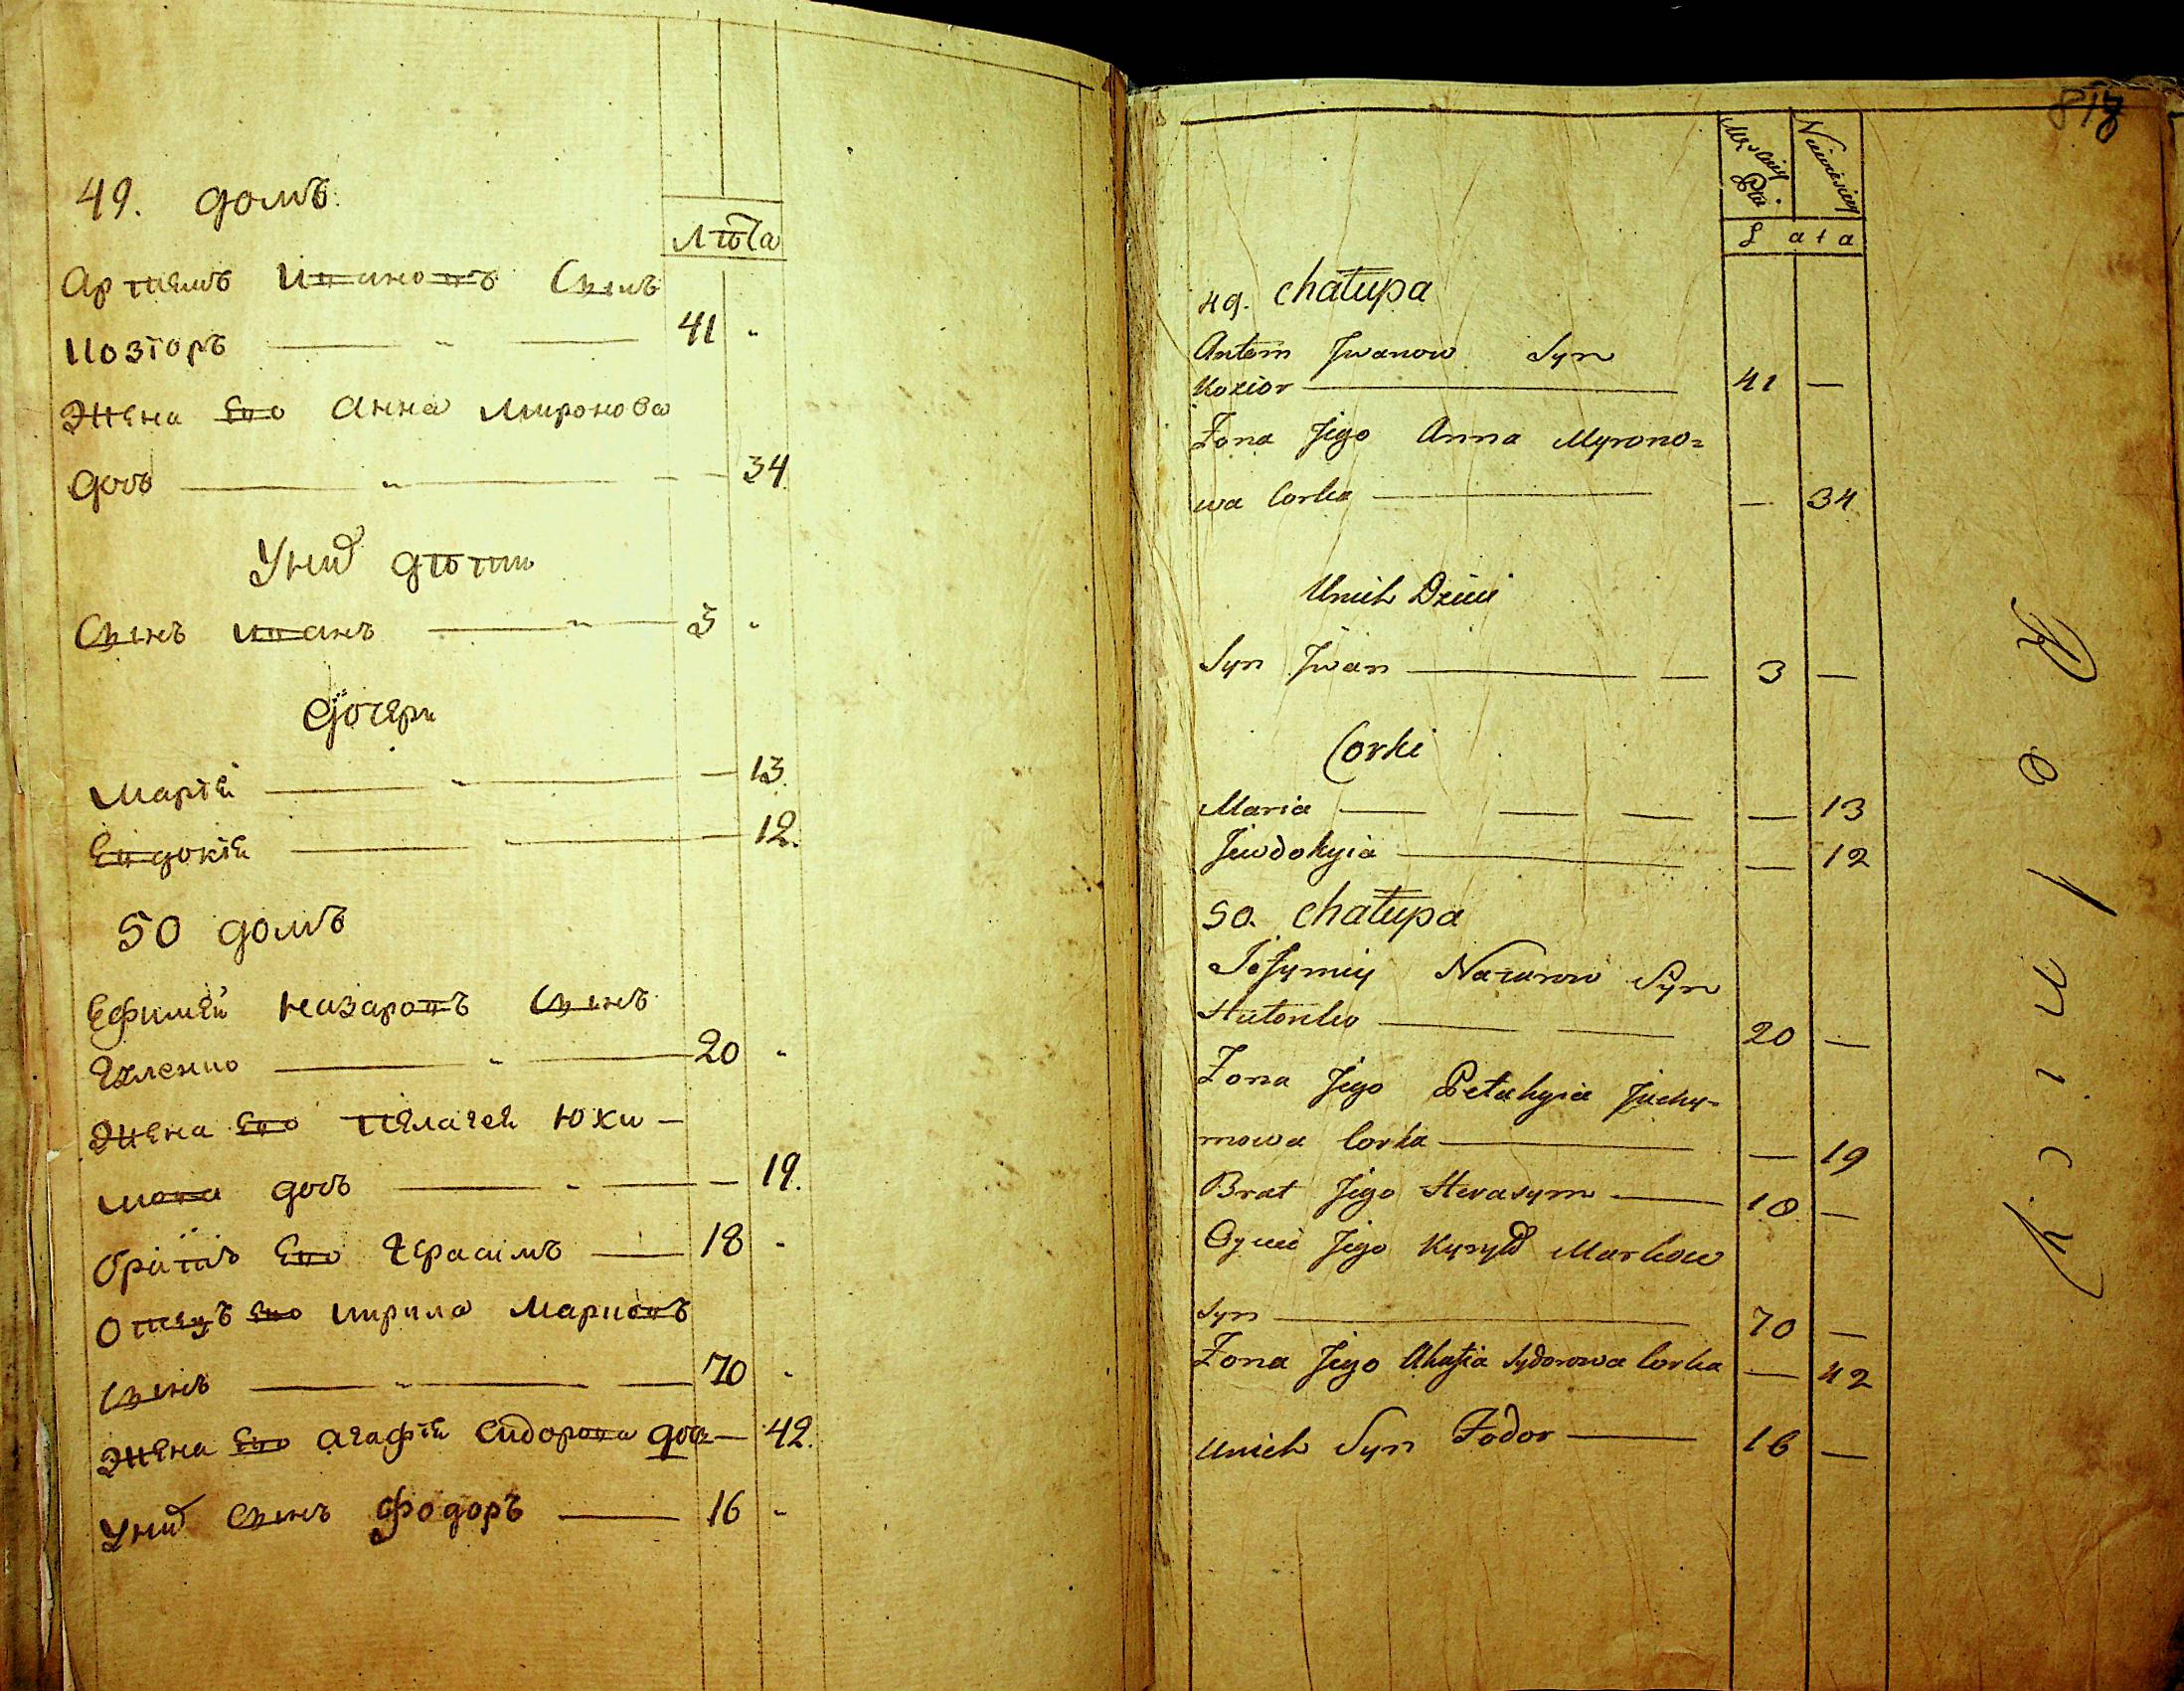 49. домъ
Лѣта
Артемъ Ивановъ Сынъ
Козіоръ — „ — 41 „
Жена Его Анна Миронова
дочь — „ — — 34.
У нихъ дѣти
Сынъ Иванъ — „ — 3 „
Дочери
Марія — „ — — 13.
Евдокія — „ — — 12.
50 домъ
Ефимей Назаровъ Сынъ
— „ — 20 „
Жена Его Пелагея Юхи-
мова дочь — „ — — 19.
братъ Его Герасимъ — 18 „
Отецъ Его Кирила Марковъ
Сынъ — „ — — 70 „
Жена Его Агафія Сидорова дочь — 42.
У нихъ Сынъ Фодоръ — 16 „
Męzkiey Płci. Niewieściey
Lata
49. Chałupa
Artem Jwanow Syn
Kozior — 41 —
Żona Jego Anna Myrono=
wa Corka — — 34
Unich Dzieci
Syn Jwan — — 3 —
Corki
Maria — — — — 13
Jewdokyia — — 12
50. Chałupa
Jefymiy Nazarow Syn
— — 20 —
Żona Jego Pelahyia Juchy-
mowa Corka — — 19
Brat Jego Herasym — 18 —
Oyciec Jego Kyryło Markow
Syn — 70 —
Żona Jego Ahafia Sydorowa Corka — 42
Unich Syn Fodor — 16 —
Rolnicy